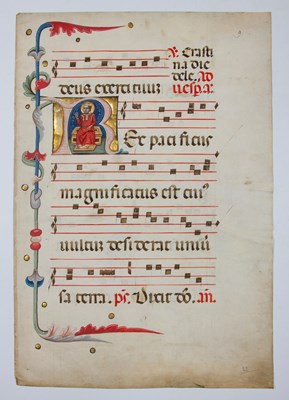 ℟. Crasti
na die
dele. Ad
deus exercituum vesp̄. a.
Rex pacificus
magnificatus est cui᷒
vultum desiderat univer
sa terra. ps. Dixit do. an̄.